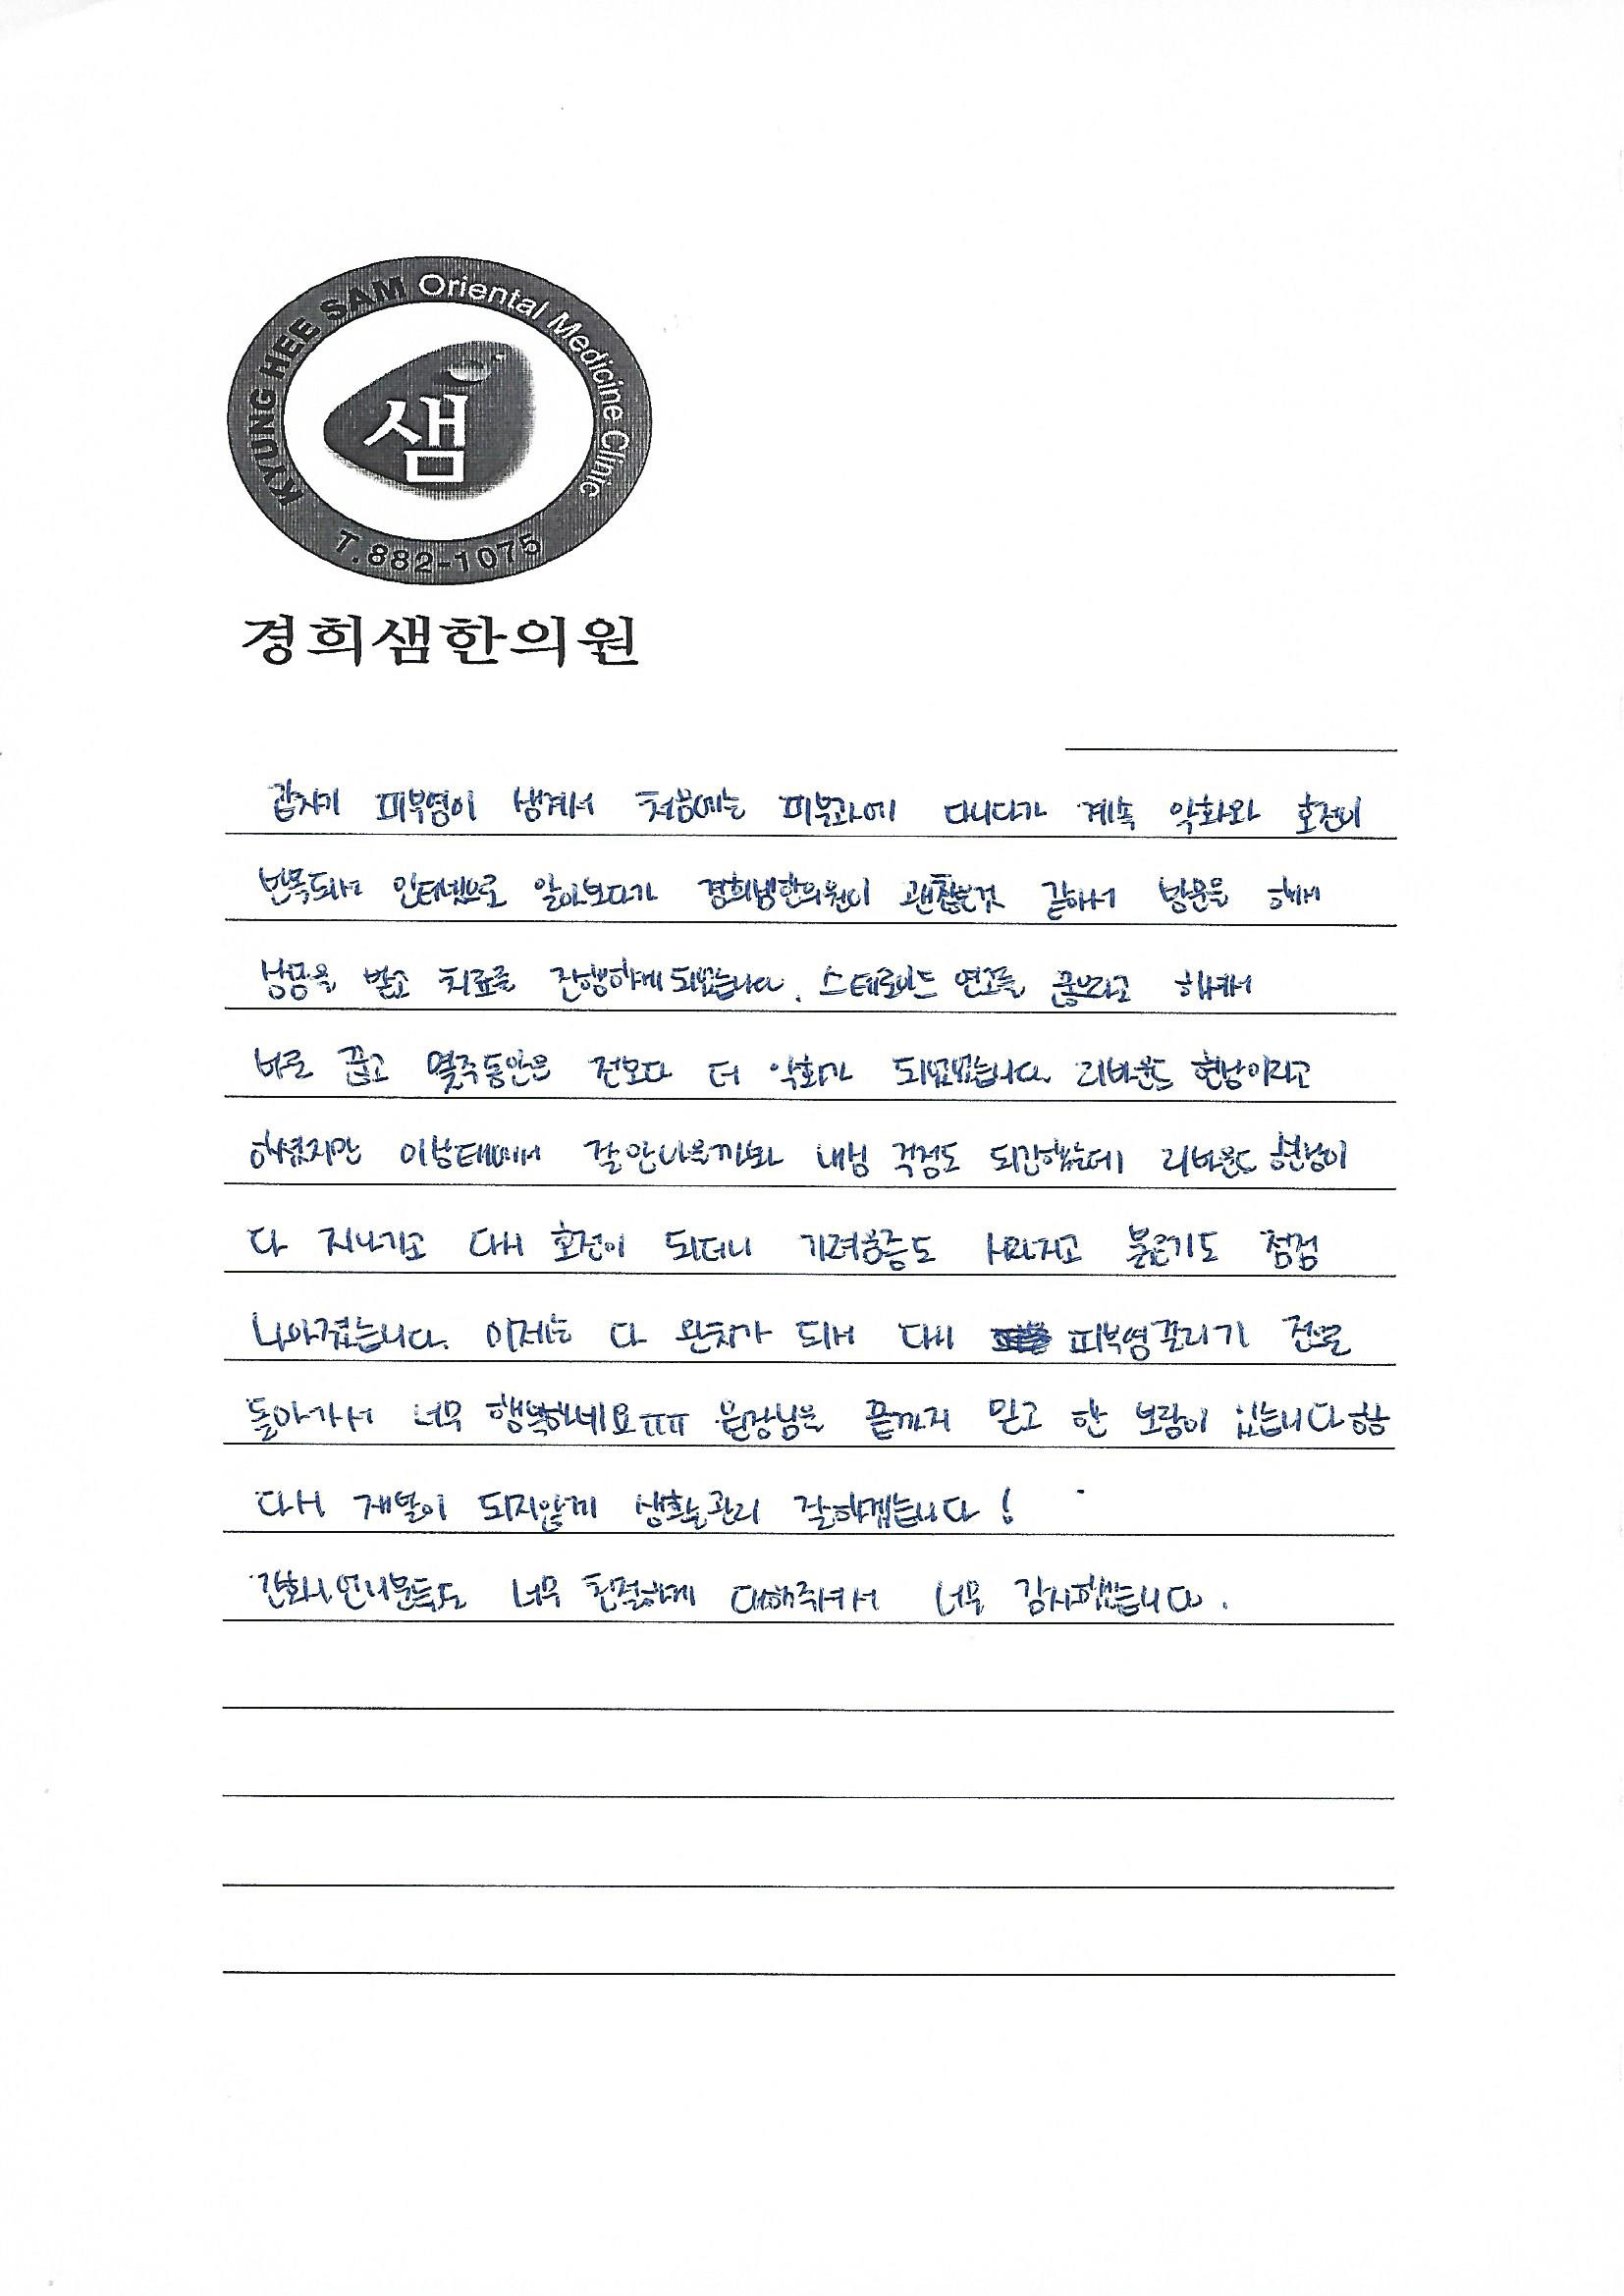 KYUNG HEE SAM Oriental Medicine Clinic
샘
T.882-1075
경희샘한의원
갑자기 피부염이 생겨서 처음에는 피부과에 다니다가 계속 악화와 호전이
반복되서 인터넷으로 알아보다가 경희샘한의원이 괜찮은것 같아서 방문을 해서
상담을 받고 치료를 진행하게 되었습니다. 스테로이드 연고를 끊으라고 하셔서
바로 끊고 몇주동안은 전보다 더 악화가 되었었습니다. 리바운드 현상이라고
하셨지만 이상태에서 잘안나을까봐 내심 걱정도 되긴했는데 리바운드 현상이
다 지나가고 다시 호전이 되더니 가려움증도 사라지고 붉은기도 점점
나아졌습니다. 이제는 다 완치가 되서 다시 피부염걸리기 전으로
돌아가서 너무 행복하네요ㅠㅠ 원장님을 끝까지 믿고 한 보람이 있습니다
다시 재발이 되지않게 생활관리 잘하겠습니다!
간호사언니분들도 너무 친절하게 대해주셔서 너무 감사했습니다.